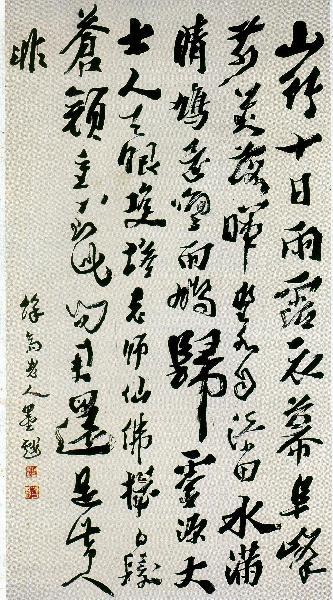 山行十日雨霑衣幕阜峰
前對落暉野水自添田水滿
晴鳩卻喚雨鳩歸靈源大
士人天眼雙塔老師諸佛機白髮
蒼顏重到此問君還是昔人
非
人墨戲